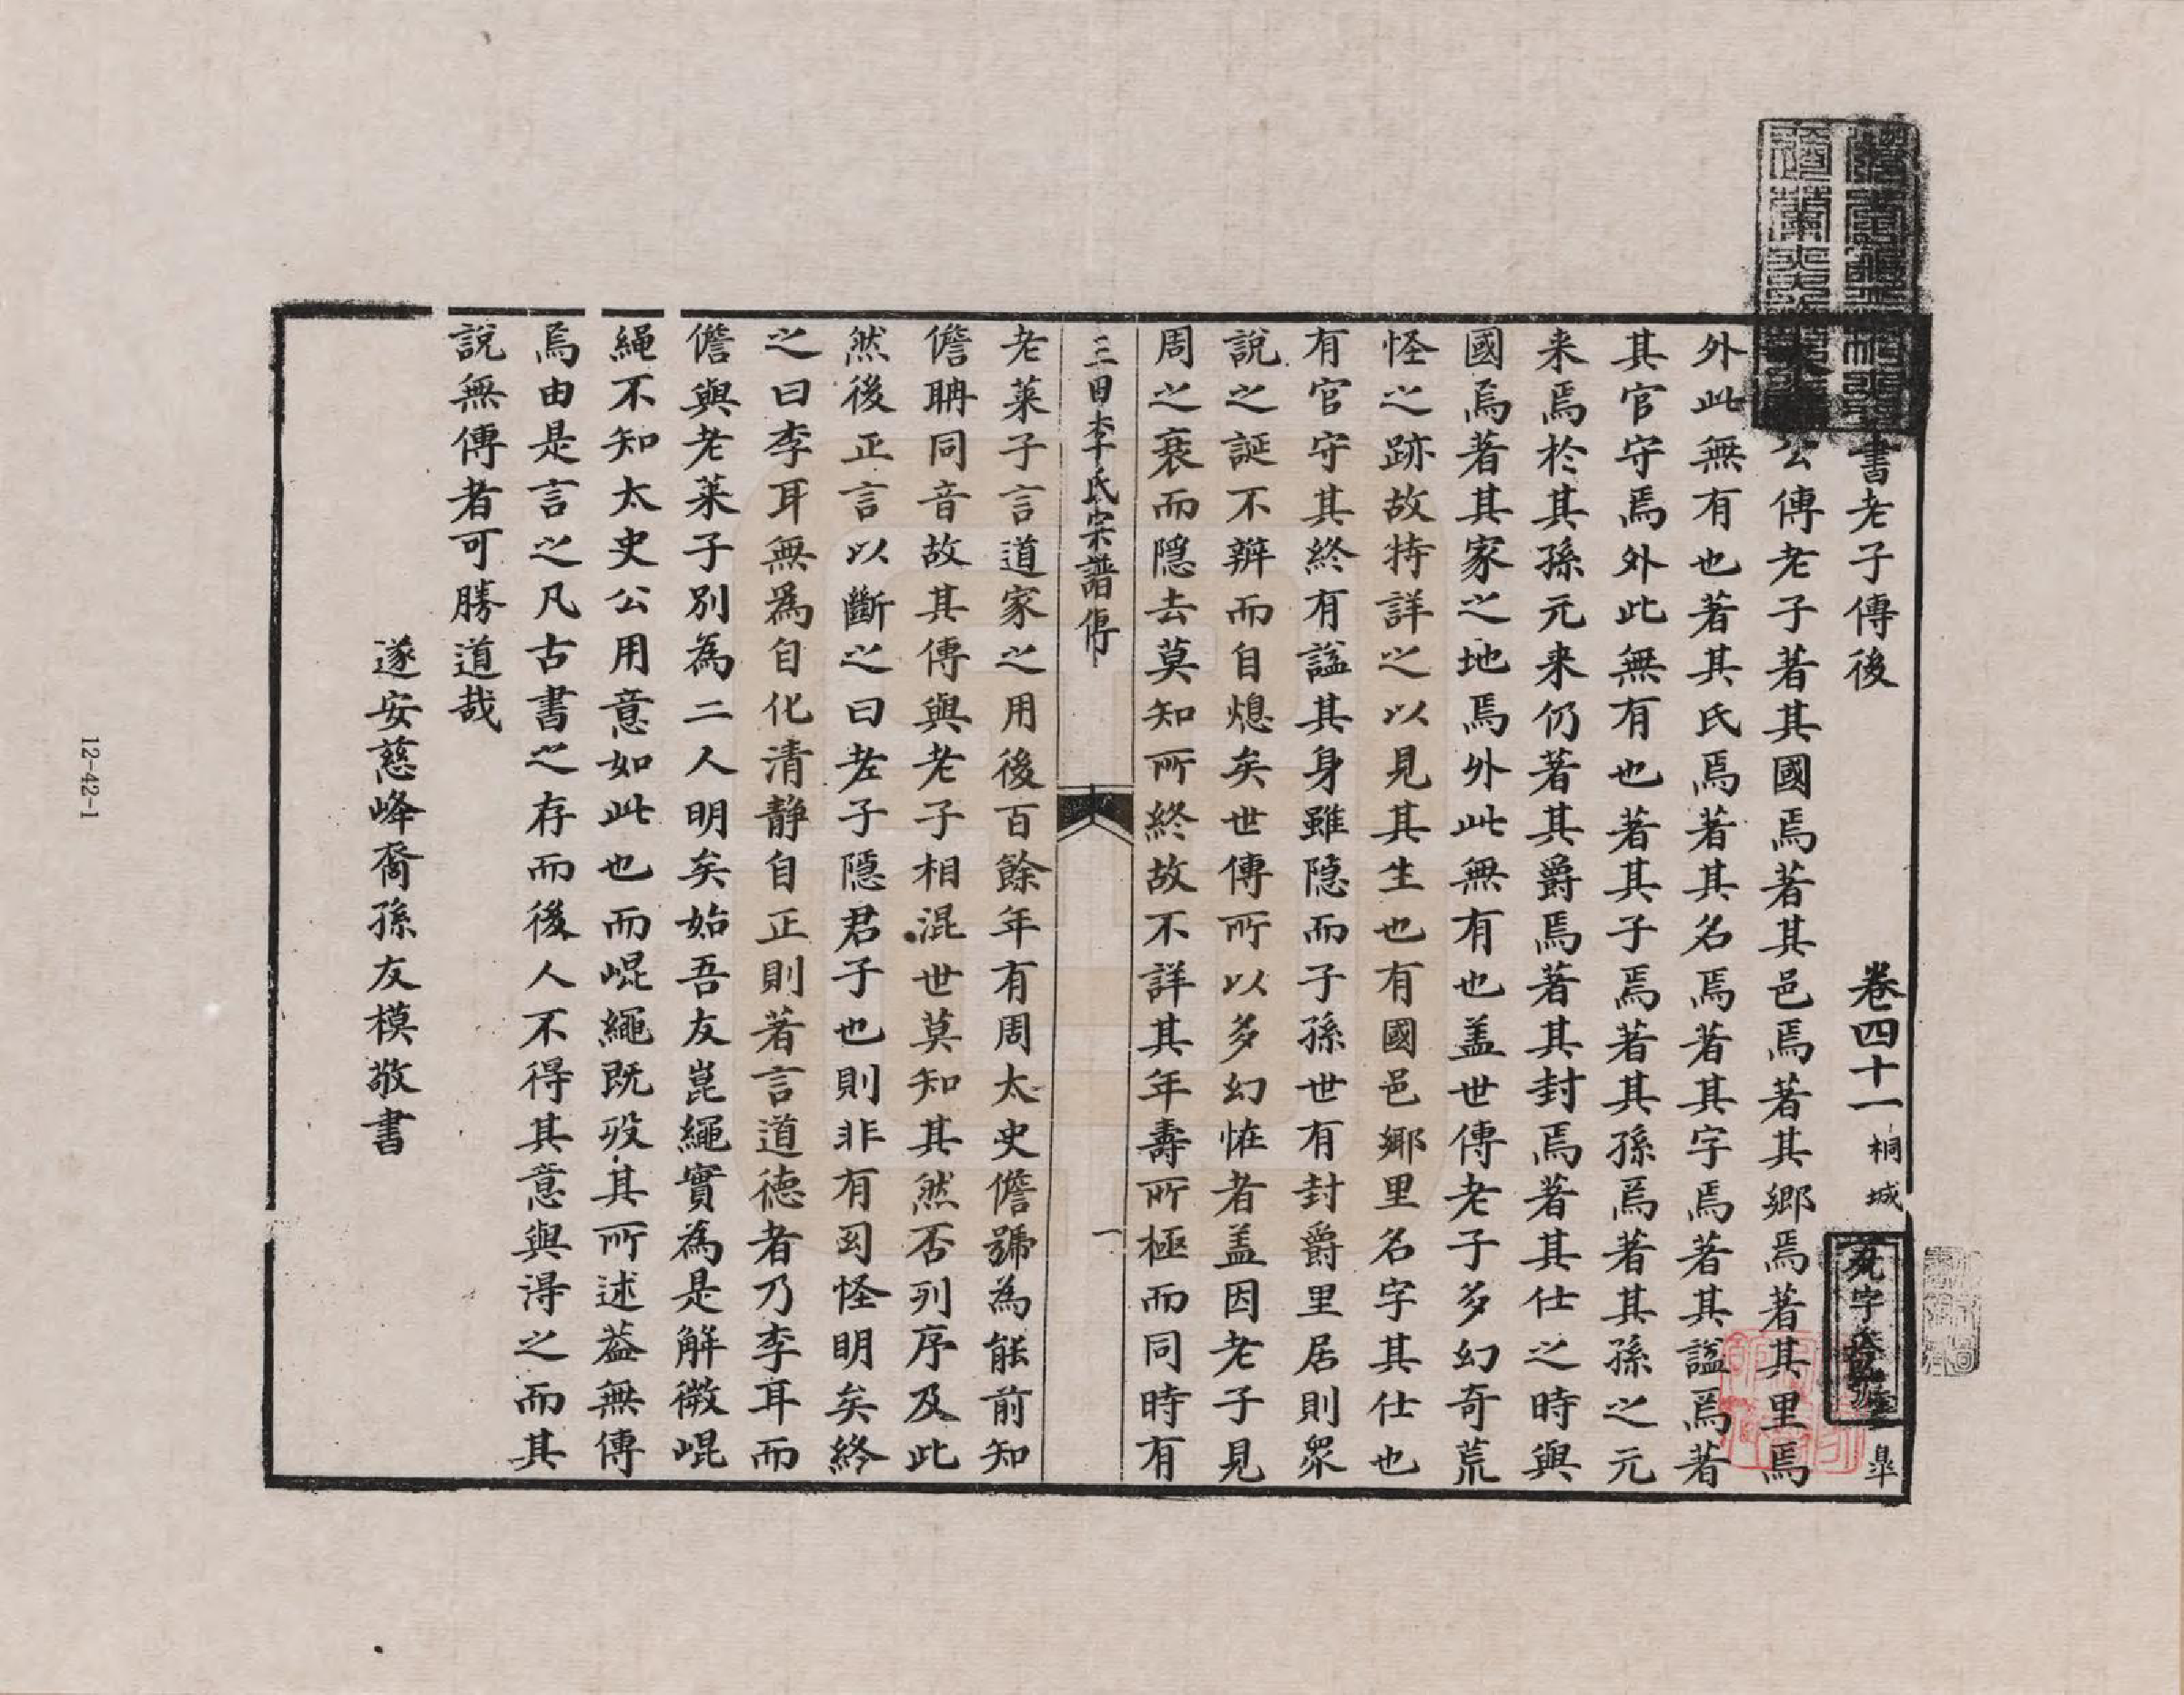 書老子傳後 卷四十一 桐城 皐
公傳老子著其國焉著其邑焉著其鄉焉著其里焉
外此無有也著其氏焉著其名焉著其字焉著其諡焉著
其官守焉外此無有也著其子焉著其孫焉著其孫之元
来焉於其孫元来仍著其爵焉著其封焉著其仕之時與
國焉著其家之地焉外此無有也盖世傳老子多幻奇荒
怪之跡故特詳之以見其生也有國邑鄉里名字其仕也
有官守其終有諡其身雖隱而子孫世有封爵里居則衆
說之誕不辨而自熄矣世傳所以多幻恠者盖因老子見
周之衰而隱去莫知所終故不詳其年壽所極而同時有
三田李氏宗譜傳
一
老萊子言道家之用後百餘年有周太史儋號為能前知
儋聃同音故其傳與老子相混世莫知其然否列序及此
然後正言以斷之曰老子隱君子也則非有囘怪明矣終
之曰李耳無為自化清靜自正則著言道德者乃李耳而
儋與老萊子別為二人明矣始吾友崑繩實為是解微崐
繩不知太史公用意如此也而崐繩既歿其所述葢無傳
焉由是言之凡古書之存而後人不得其意與淂之而其
說無傳者可勝道哉
遂安慈峰裔孫友模敬書
12-42-1